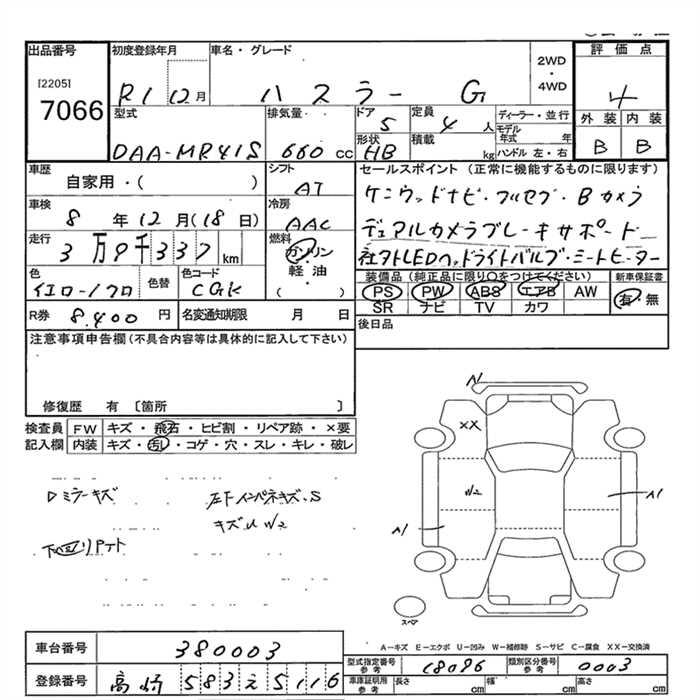 出品番号
[2205]
7066
初度登録年月
R1 12 月
車名・グレード
ハスラー G
2WD
・
4WD
評価点
4
外装 内装
B B
型式
DAA-MR41S
排気量
660 cc
ドア
5
定員
4 人
ディーラー・並行
モデル年式 年
形状
HB
積載
kg
ハンドル 左・右
車歴
自家用・( )
シフト
AT
車検
8 年 12 月 (18 日)
冷房
AAC
走行
3万9千337 km
燃料
ガソリン
・
軽油
( )
色
イエロー/クロ
色替
色コード
CGK
R券 8.400 円
名変通知期限 月 日
セールスポイント (正常に機能するものに限ります)
ケンウッドナビ・フルセブ・Bカメラ
デュアルカメラブレーキサポート
社外LEDヘッドライトバルブ・ミートヒーター
装備品 (純正品に限り○をつけてください)
PS PW ABS エアB AW
SR ナビ TV カワ
新車保証書
有・無
後日品
注意事項申告欄 (不具合内容等は具体的に記入して下さい)
修復歴 有 〔箇所 〕
検査員 FW キズ・飛石・ヒビ割・リペア跡・×要
記入欄 内装 キズ・汚レ・コゲ・穴・スレ・キレ・破レ
Dミラーキズ
左Fインパネキズ.S
キズU W2
A1
XX
W2
A1
A1
スペア
A-キズ E-エクボ U-凹み W-補修跡 S-サビ C-腐食 XX-交換済
車台番号 380003
登録番号 高崎 583 え 5116
型式指定番号 参考 18096
類別区分番号 参考 0003
車庫証明用 参考 長さ cm 幅 cm 高さ cm